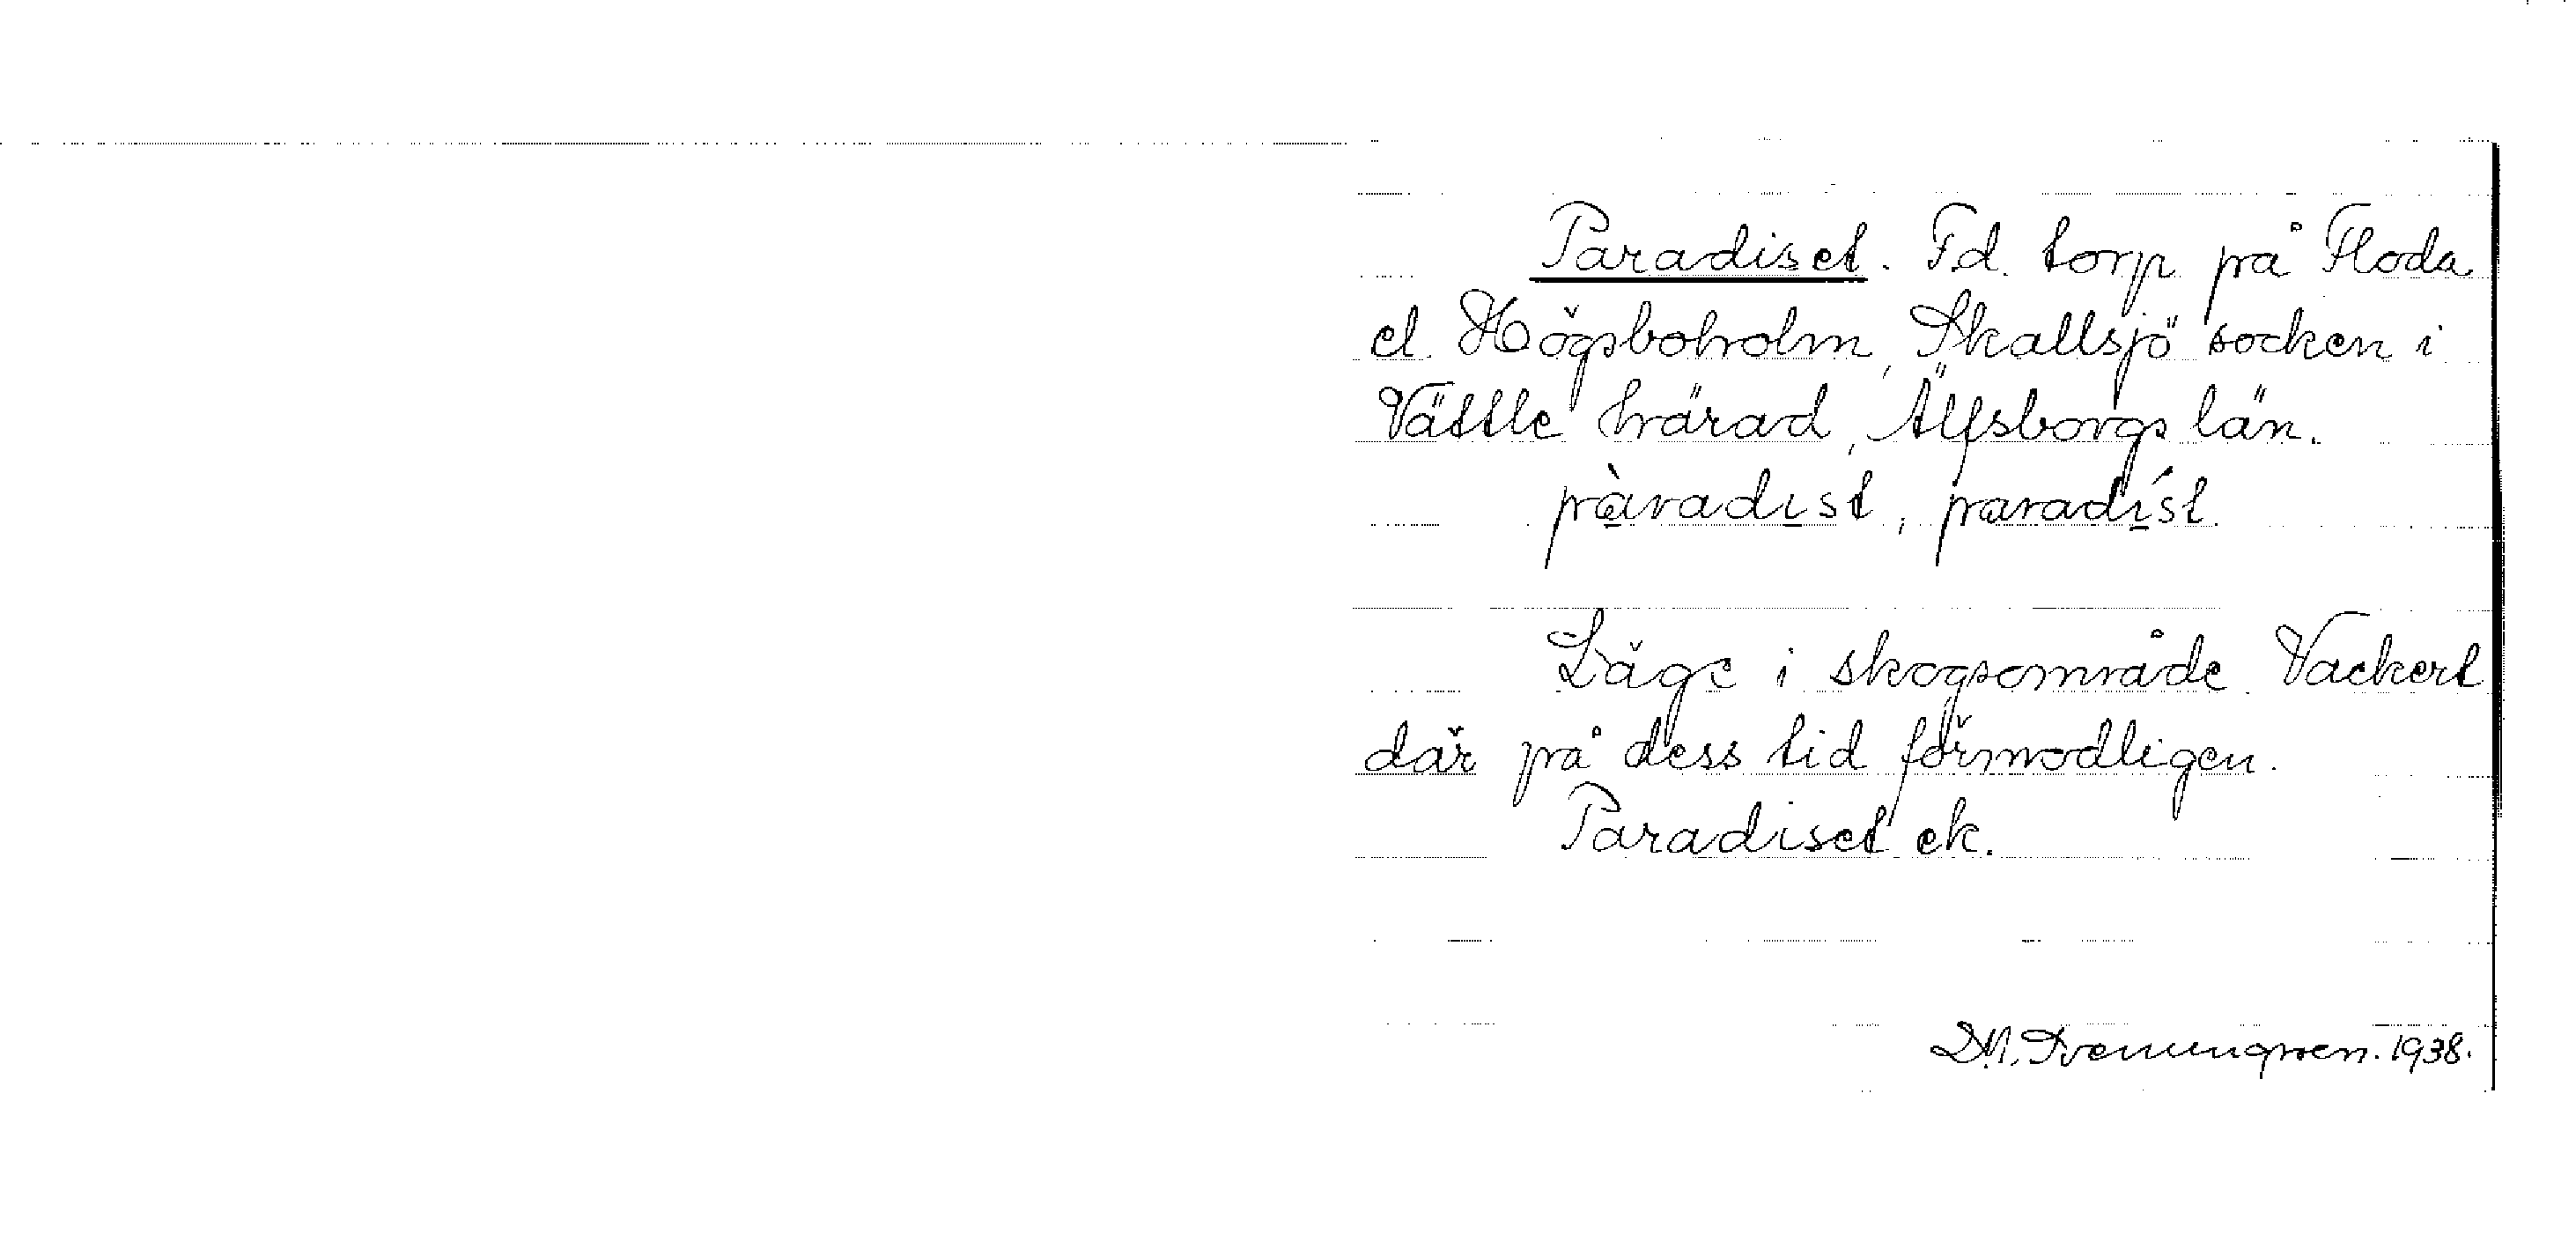 Paradiset. F.d. torp på Floda
el. Högsboholm, Skallsjö socken i
Vättle härad, Älfsborgs län.
pàradıst, paradı́st.
Läge i skogsområde. Vackert
där på dess tid förmodligen.
Paradiset ek.
D.N. 1938.